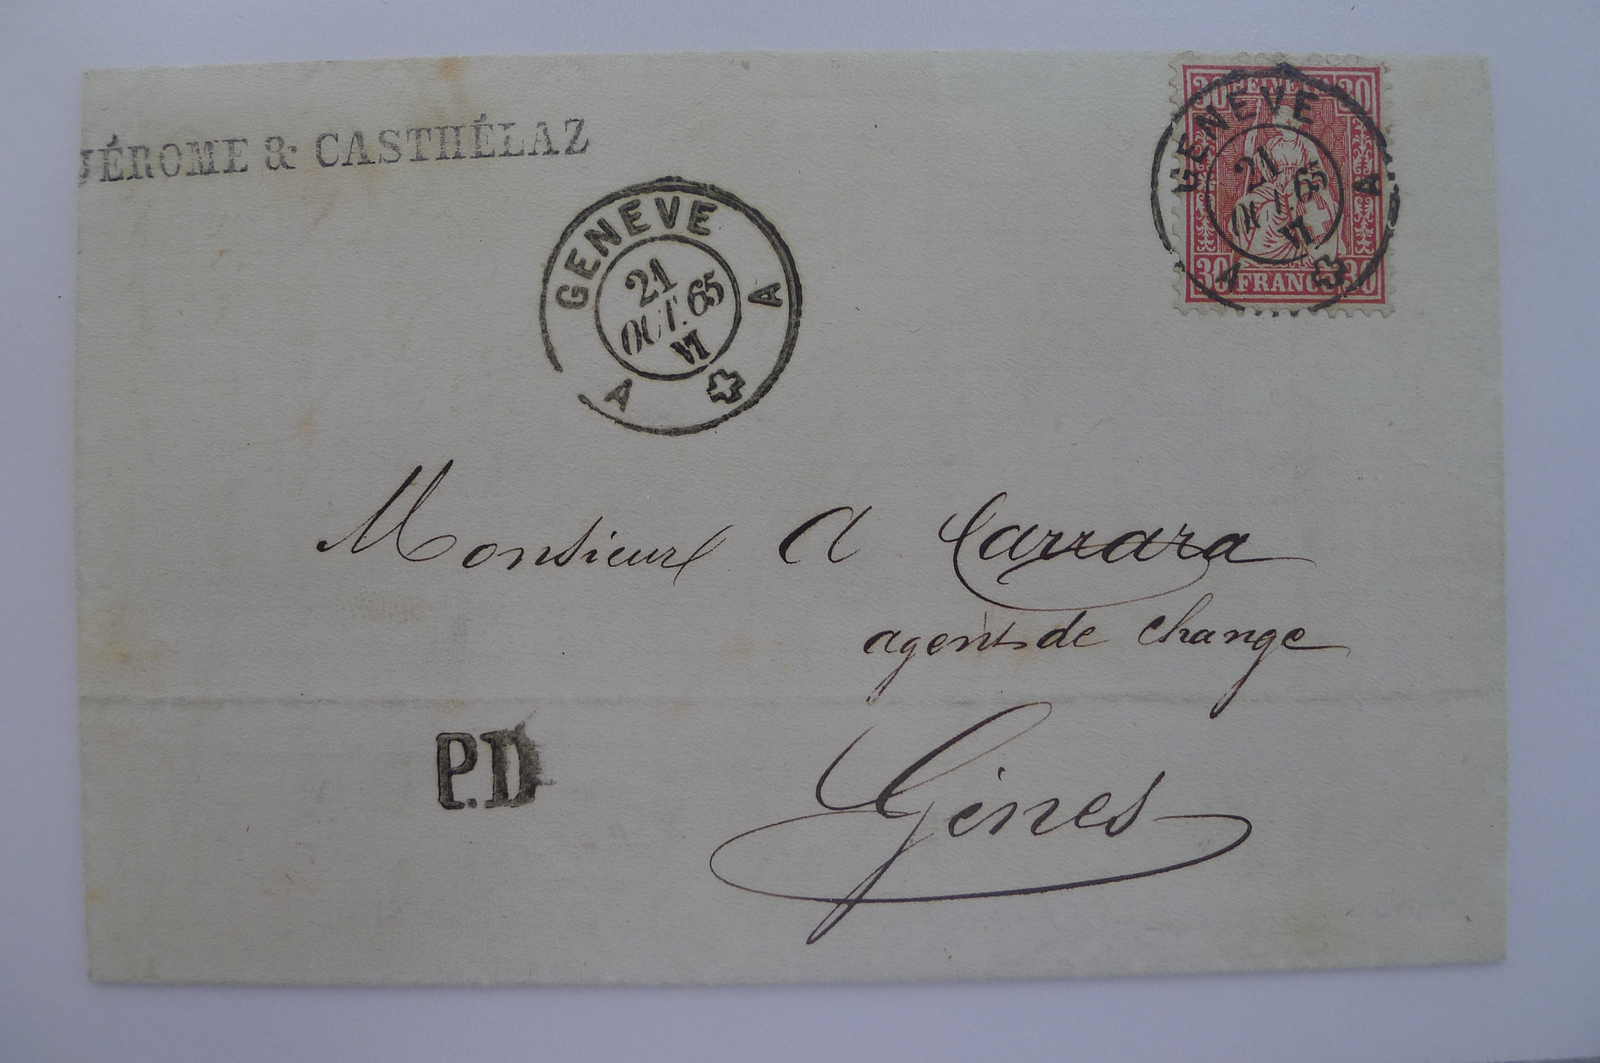 JÉROME & CASTHÉLAZ
GENÈVE
21
OCT. 65
VI
A A
30 HELVETIA 30
30 FRANCO 30
GENÈVE
21
OCT. 65
VI
A A
Monsieur A Carrara
agent de change
Gènes
P.D